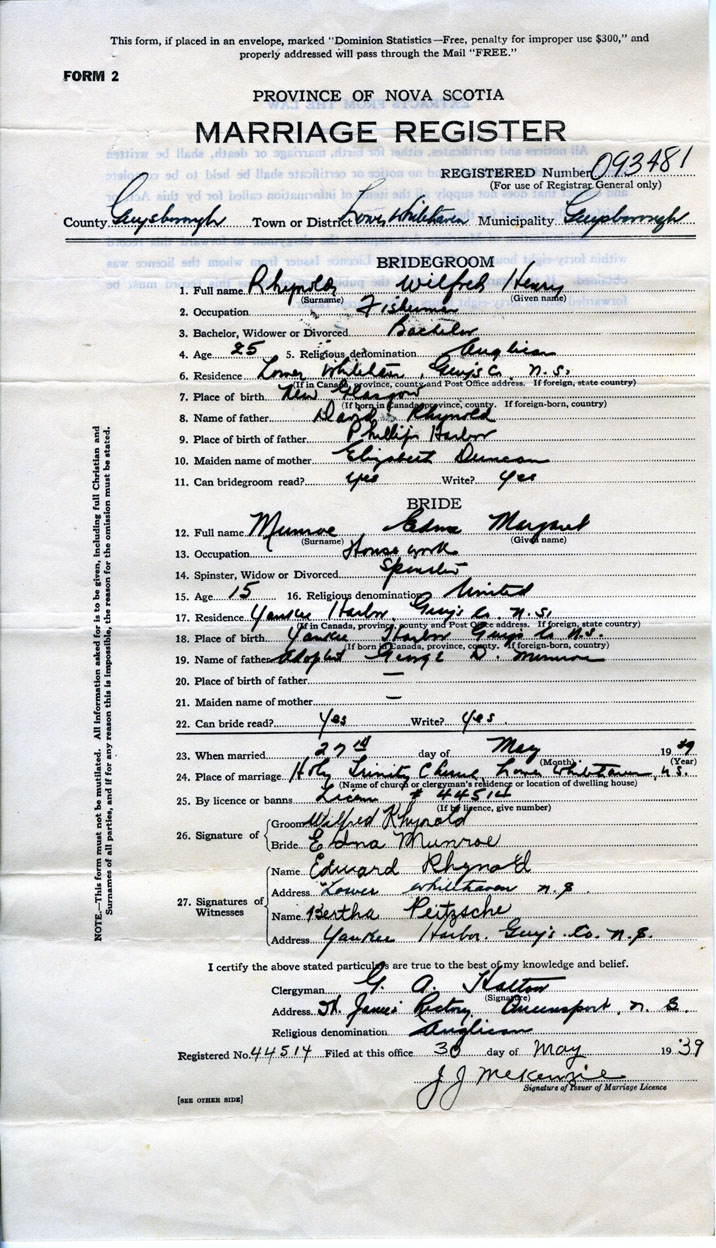 This form, if placed in an envelope, marked "Dominion Statistics—Free, penalty for improper use $300," and
properly addressed will pass through the Mail "FREE."
FORM 2
PROVINCE OF NOVA SCOTIA
MARRIAGE REGISTER
REGISTERED Number 093481
(For use of Registrar General only)
County Guysborough Town or District Lower Whitehaven Municipality Guysborough
BRIDEGROOM
1. Full name Rhynold Wilfred Henry
(Surname) (Given name)
2. Occupation Fisherman
3. Bachelor, Widower or Divorced Bachelor
4. Age 25 5. Religious denomination Anglican
6. Residence Lower Whitehaven, Guy's Co. N.S.
(If in Canada, province, county and Post Office address. If foreign, state country)
7. Place of birth New Glasgow
(If born in Canada, province, county. If foreign-born, country)
8. Name of father David Rhynold
9. Place of birth of father Phillips Harbor
10. Maiden name of mother Elizabeth Duncan
11. Can bridegroom read? yes Write? yes
BRIDE
12. Full name Munroe Edna Margaret
(Surname) (Given name)
13. Occupation House work
14. Spinster, Widow or Divorced Spinster
15. Age 15 16. Religious denomination United
17. Residence Yankee Harbor, Guy's Co. N.S.
(If in Canada, province, county and Post Office address. If foreign, state country)
18. Place of birth Yankee Harbor Guy's Co N.S.
(If born in Canada, province, county. If foreign-born, country)
19. Name of father George D. Munroe
20. Place of birth of father —
21. Maiden name of mother —
22. Can bride read? Yes Write? Yes.
23. When married 27th day of May 1939
(Month) (Year)
24. Place of marriage Holy Trinity Church, Lower Whitehaven, N.S.
(Name of church or clergyman's residence or location of dwelling house)
25. By licence or banns Licence # 44514
(If by licence, give number)
26. Signature of
Groom Wilfred Rhynold
Bride Edna Munroe
27. Signatures of Witnesses
Name Edward Rhynold
Address Lower Whitehaven N.S.
Name Bertha Peitzsche
Address Yankee Harbor. Guy's Co. N.S.
I certify the above stated particulars are true to the best of my knowledge and belief.
Clergyman G. A. Hatton
(Signature)
Address St. James Rectory, Queensport, N.S.
Religious denomination Anglican
Registered No. 44514 Filed at this office 30 day of May 1939
J J McKenzie
Signature of Issuer of Marriage Licence
[SEE OTHER SIDE]
NOTE.—This form must not be mutilated. All information asked for is to be given, including full Christian and
Surnames of all parties, and if for any reason this is impossible, the reason for the omission must be stated.